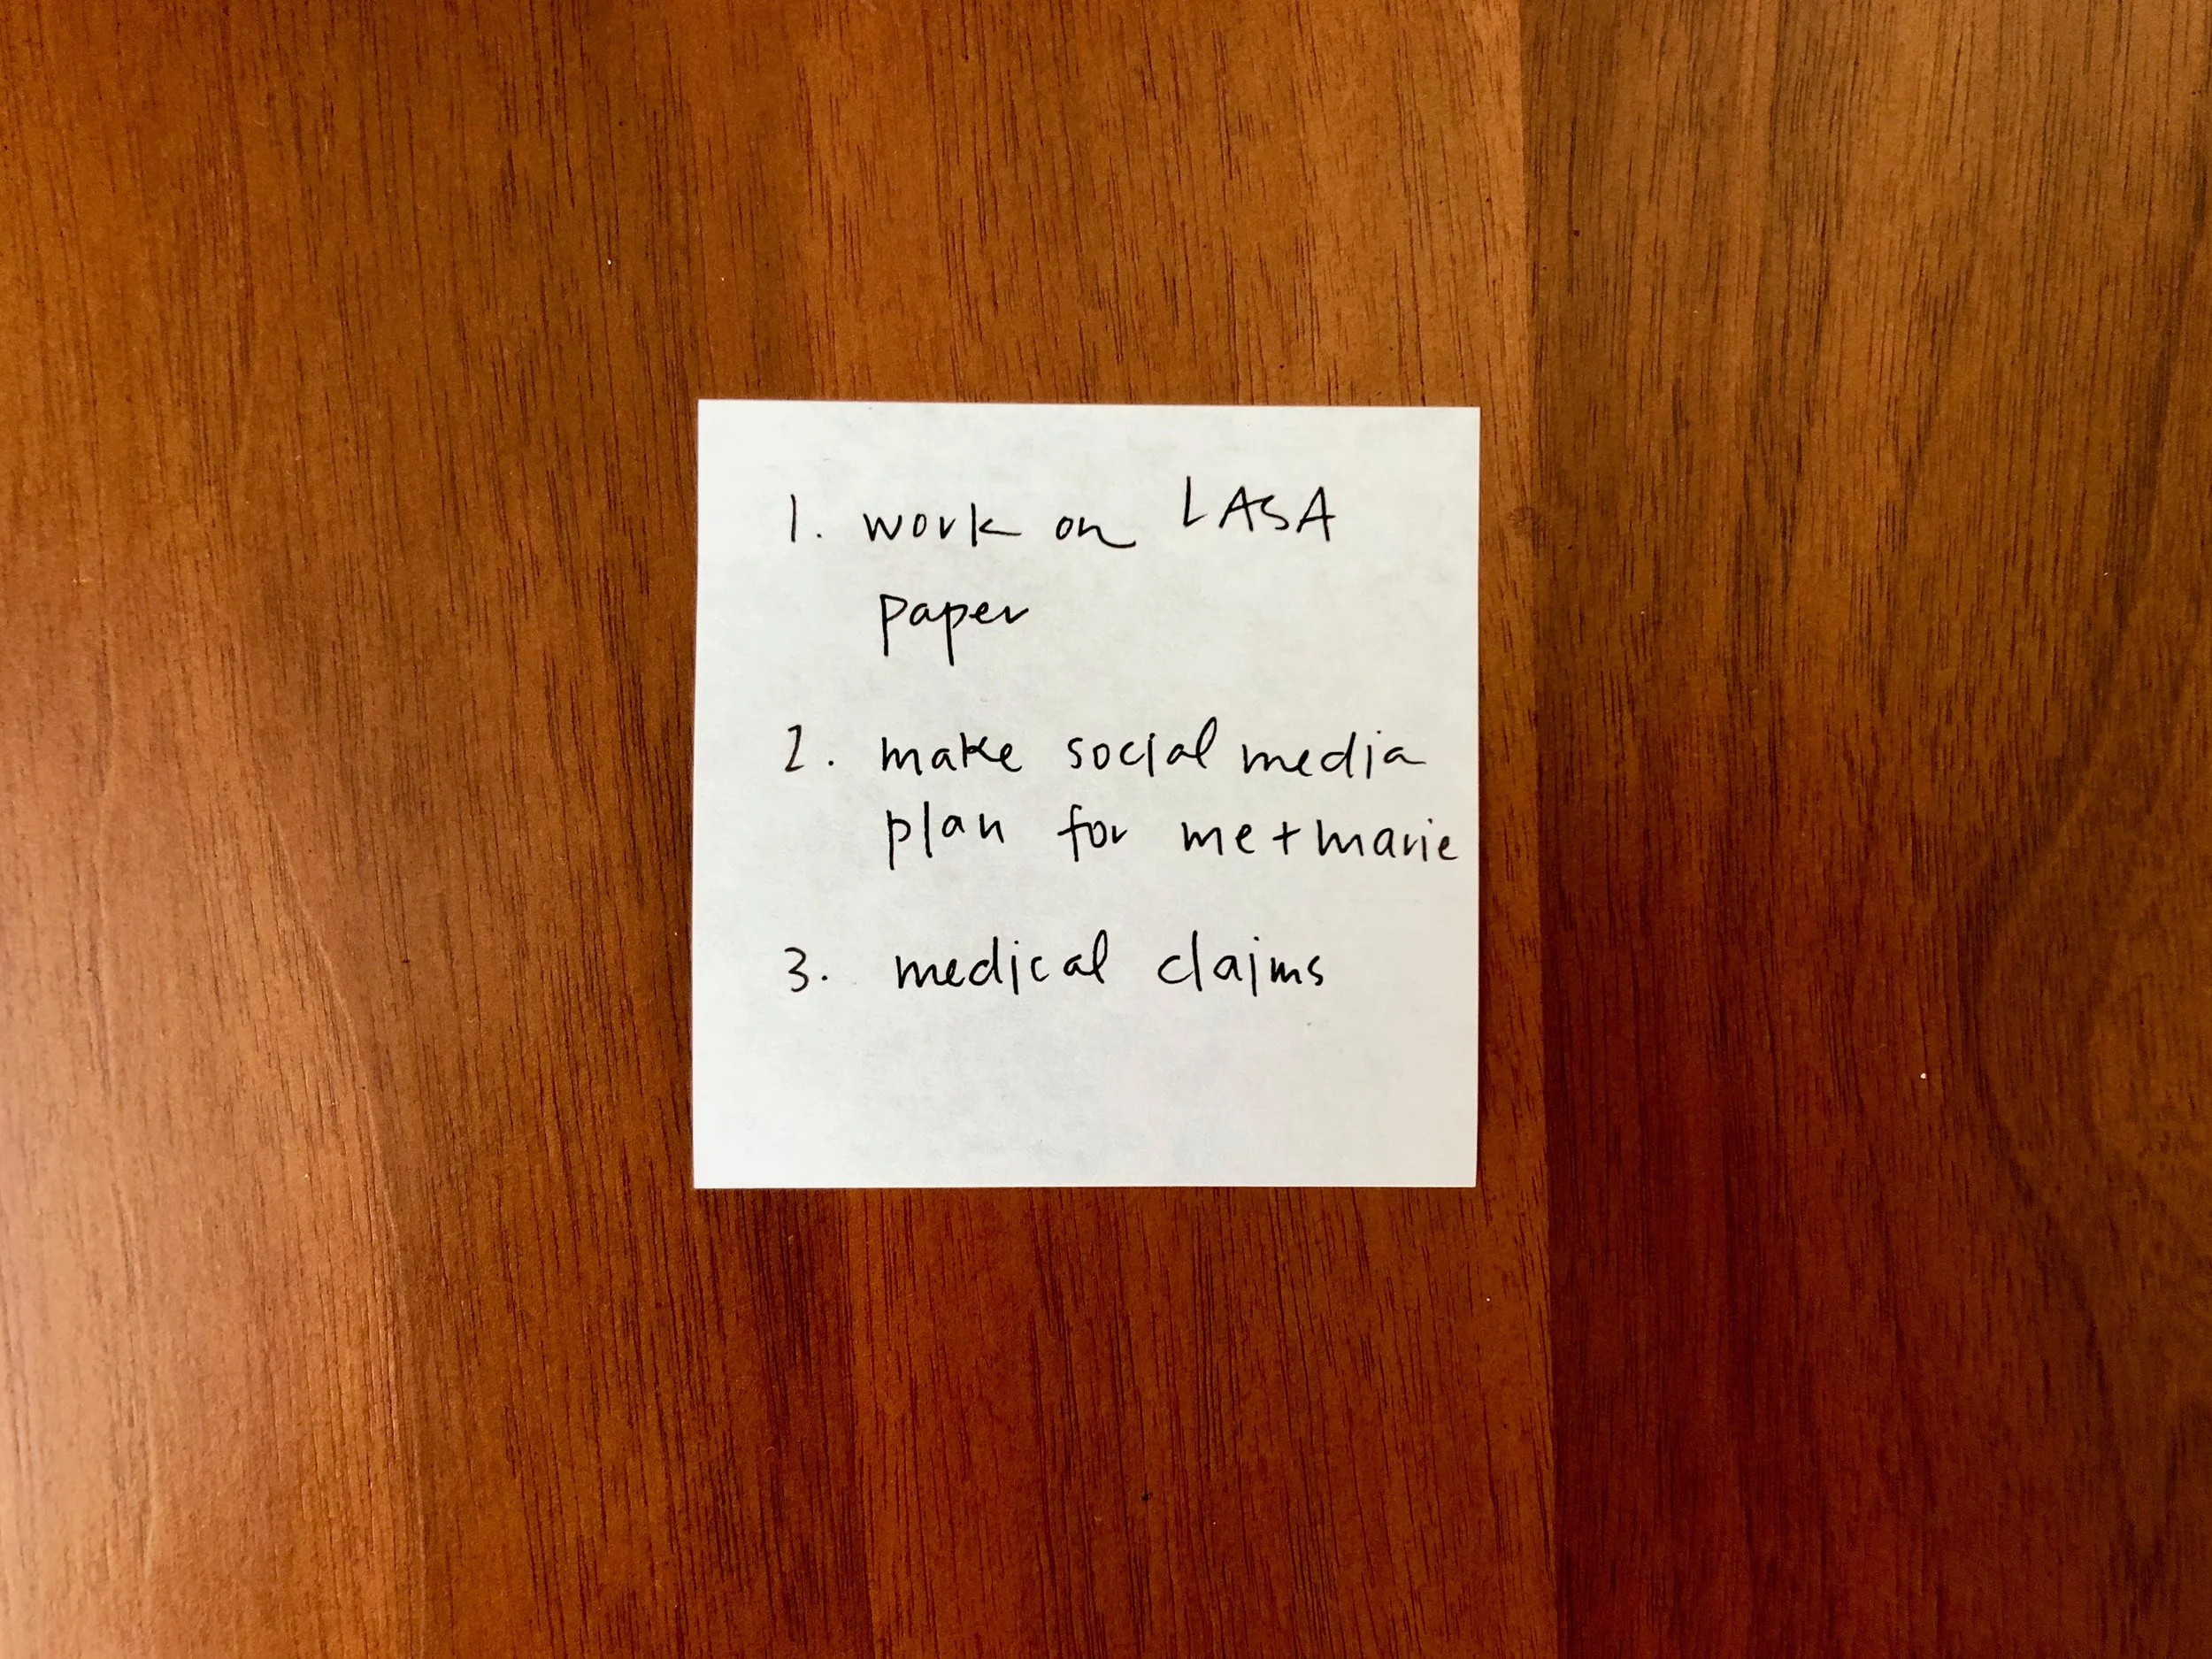 1. work on LASA
paper
2. make social media
plan for me + marie
3. medical claims